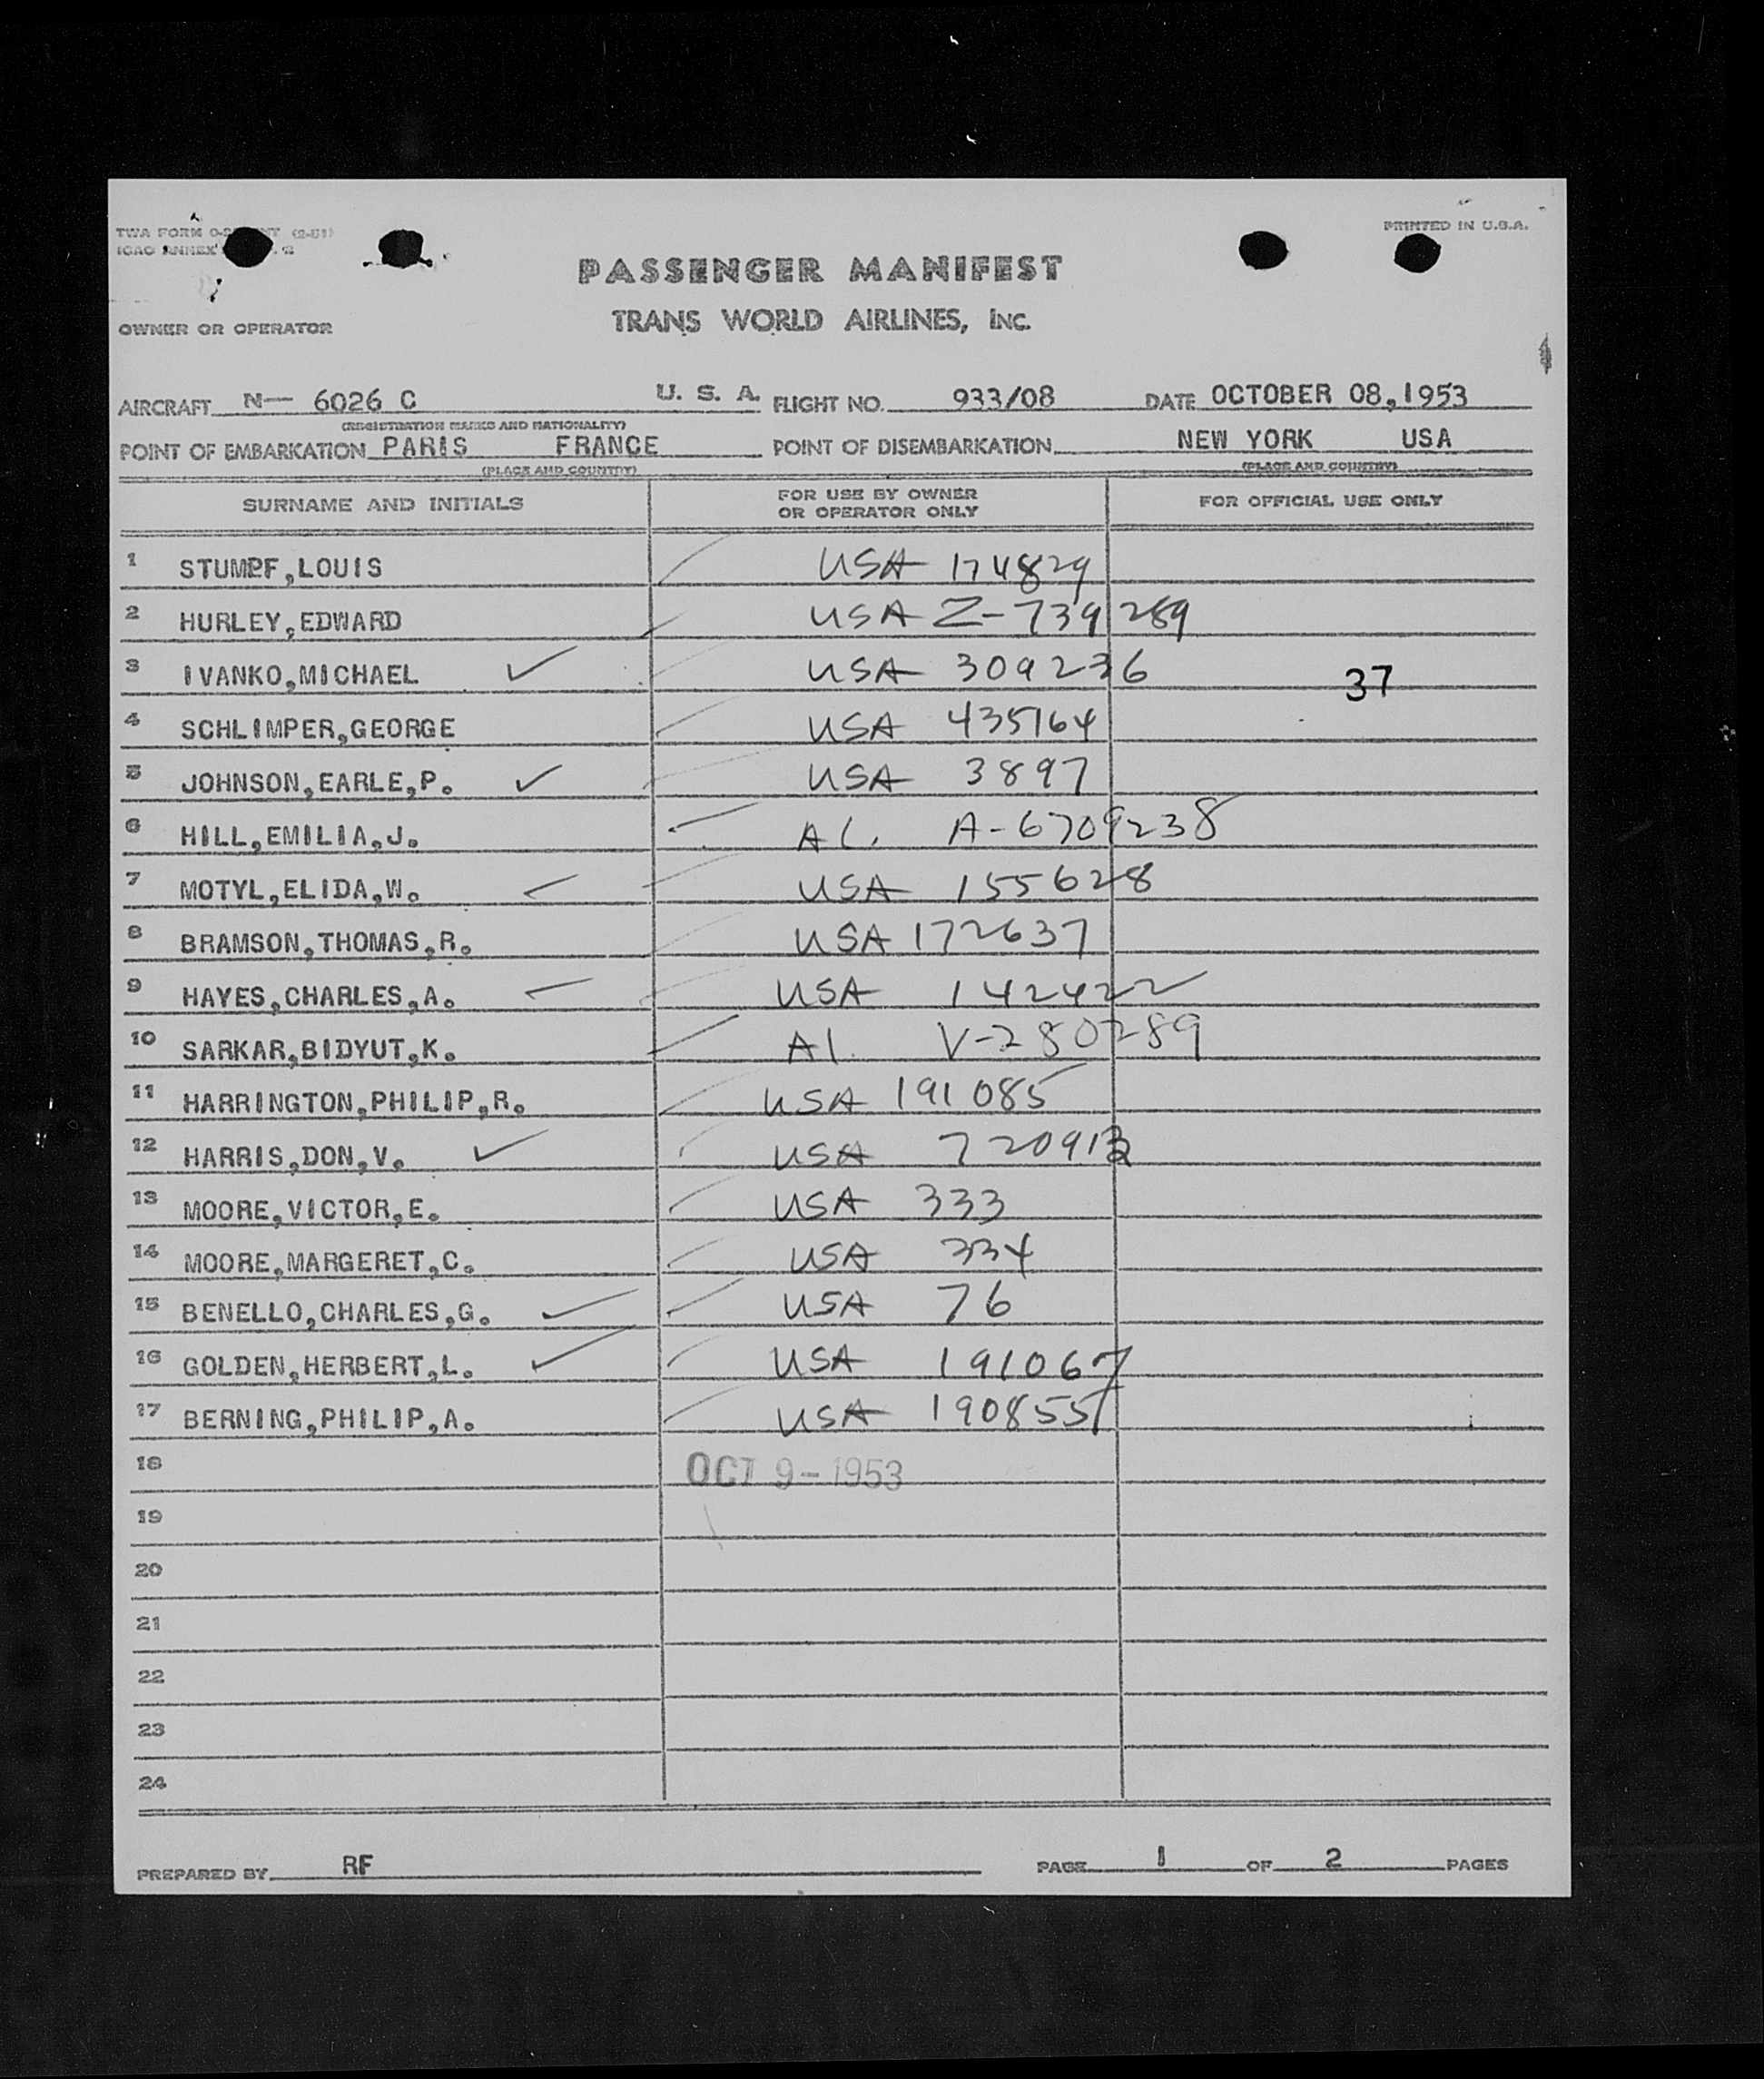 TWA FORM
ICAO ANNEX
PRINTED IN U.S.A.
PASSENGER MANIFEST
TRANS WORLD AIRLINES, INC.
OWNER OR OPERATOR
AIRCRAFT N— 6026 C U. S. A. FLIGHT NO. 933/08 DATE OCTOBER 08,1953
(REGISTRATION MARKS AND NATIONALITY)
POINT OF EMBARKATION PARIS FRANCE POINT OF DISEMBARKATION NEW YORK USA
(PLACE AND COUNTRY) (PLACE AND COUNTRY)
SURNAME AND INITIALS FOR USE BY OWNER OR OPERATOR ONLY FOR OFFICIAL USE ONLY
1 STUMPF,LOUIS USA 174829
2 HURLEY,EDWARD USA Z-739289
3 IVANKO,MICHAEL USA 309236 37
4 SCHLIMPER,GEORGE USA 435164
5 JOHNSON,EARLE,P. USA 3897
6 HILL,EMILIA,J. AL. A-6709238
7 MOTYL,ELIDA,W. USA 155628
8 BRAMSON,THOMAS,R. USA 172637
9 HAYES,CHARLES,A. USA 142422
10 SARKAR,BIDYUT,K. Al. V-280289
11 HARRINGTON,PHILIP,R. USA 191085
12 HARRIS,DON,V. USA
13 MOORE,VICTOR,E. USA 333
14 MOORE,MARGERET,C. USA 334
15 BENELLO,CHARLES,G. USA 76
16 GOLDEN,HERBERT,L. USA 191067
17 BERNING,PHILIP,A. USA 190855
18 OCT 9-1953
19
20
21
22
23
24
PREPARED BY RF PAGE 1 OF 2 PAGES